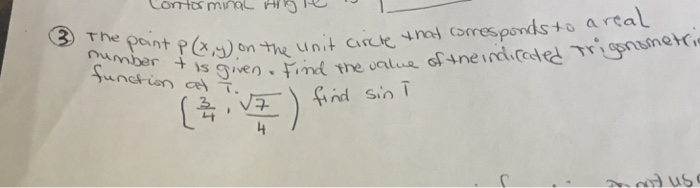 ③ The point P(x,y) on the unit circle that corresponds to a real
number t is given. Find the value of the indicated Trigonometri
function at T.
(3/4, √7/4) find sin T